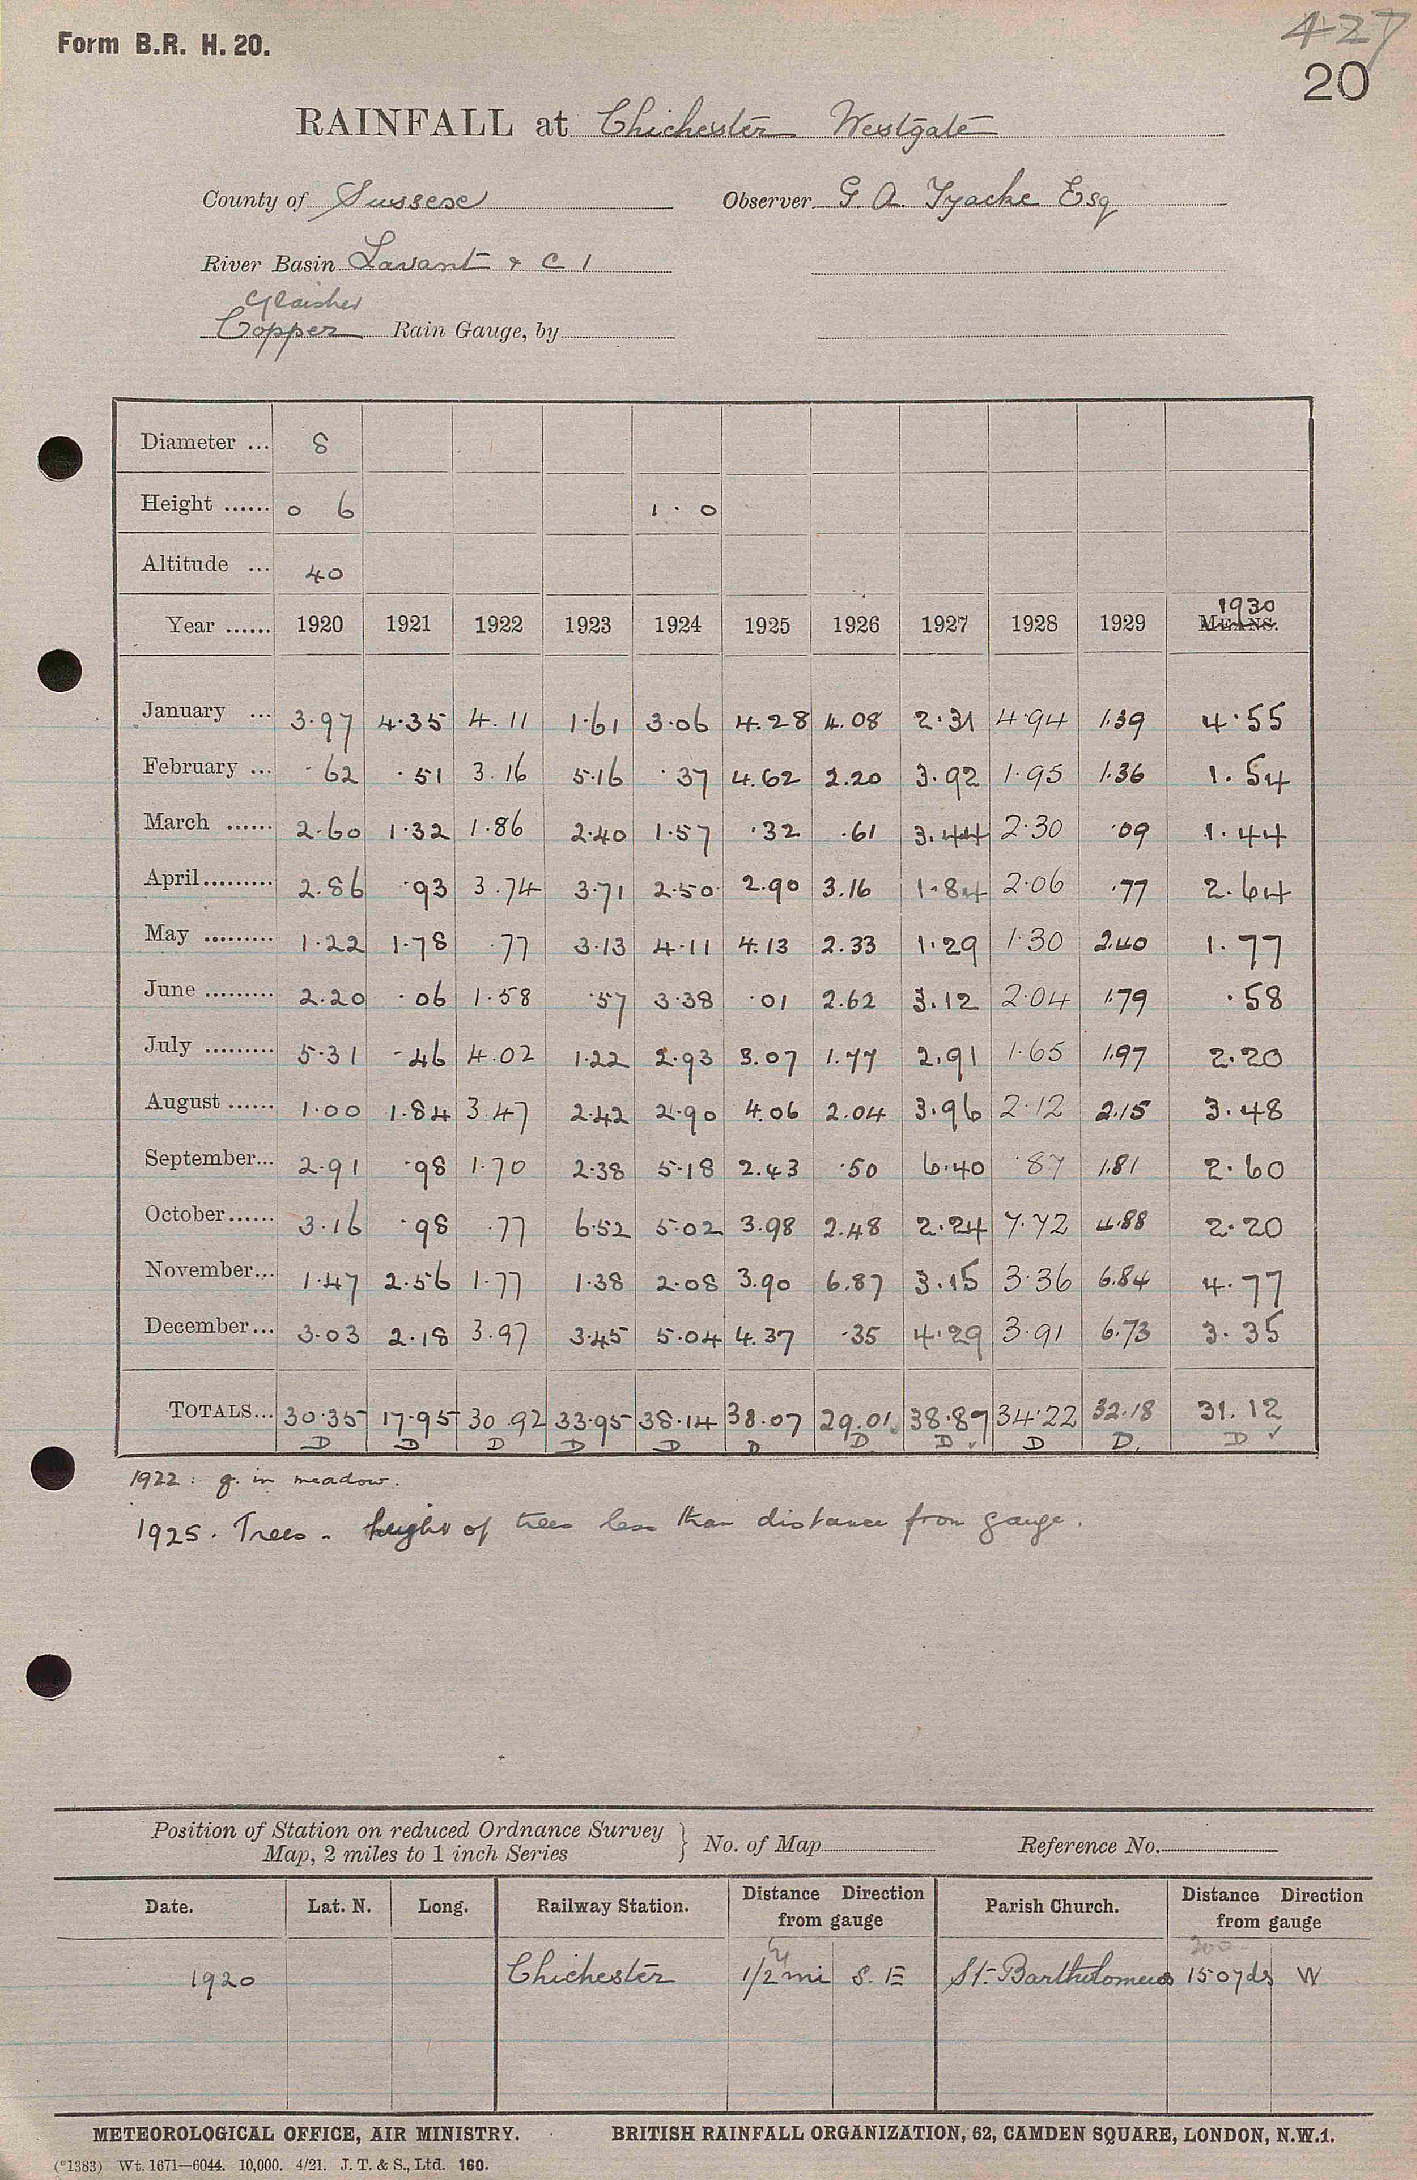 427
Form B.R. H. 20.
20
RAINFALL at Chichester Westgate
County of Sussex Observer G A Tyacke Esq
River Basin Lavant & C 1
Glaisher
Copper Rain Gauge, by
Diameter ... 8
Height ...... 0 6 1 . 0
Altitude ... 40
1930
Year ...... 1920 1921 1922 1923 1924 1925 1926 1927 1928 1929 MEANS.
January ... 3.97 4.35 4.11 1.61 3.06 4.28 4.08 2.31 4.94 1.39 4.55
February ... .62 .51 3.16 5.16 .37 4.62 2.20 3.92 1.95 1.36 1.54
March ...... 2.60 1.32 1.86 2.40 1.57 .32 .61 3.44 2.30 .09 1.44
April......... 2.86 .93 3.74 3.71 2.50 2.90 3.16 1.84 2.06 .77 2.64
May ......... 1.22 1.78 .77 3.13 4.11 4.13 2.33 1.29 1.30 2.40 1.77
June ......... 2.20 .06 1.58 .57 3.38 .01 2.62 3.12 2.04 1.79 .58
July ......... 5.31 .46 4.02 1.22 2.93 3.07 1.77 2.91 1.65 1.97 2.20
August ...... 1.00 1.84 3.47 2.42 2.90 4.06 2.04 3.96 2.12 2.15 3.48
September... 2.91 .98 1.70 2.38 5.18 2.43 .50 6.40 .87 1.81 2.60
October...... 3.16 .98 .77 6.52 5.02 3.98 2.48 2.24 7.72 4.88 2.20
November... 1.47 2.56 1.77 1.38 2.08 3.90 6.87 3.15 3.36 6.84 4.77
December... 3.03 2.18 3.97 3.45 5.04 4.37 .35 4.29 3.91 6.73 3.35
TOTALS... 30.35 17.95 30.92 33.95 38.14 38.07 29.01 38.87 34.22 32.18 31.12
D D D D D D D D ✓ D D. D ✓
1922 : g. in meadow.
1925. Trees - height of trees less than distance from gauge.
Position of Station on reduced Ordnance Survey Map, 2 miles to 1 inch Series } No. of Map Reference No.
Date. Lat. N. Long. Railway Station. Distance Direction from gauge Parish Church. Distance Direction from gauge
200
1920 Chichester 1/2 mi S. E St. Bartholomews 150 yds W
METEOROLOGICAL OFFICE, AIR MINISTRY. BRITISH RAINFALL ORGANIZATION, 62, CAMDEN SQUARE, LONDON, N.W.1.
(*1383) Wt. 1671—6044. 10,000. 4/21. J. T. & S., Ltd. 160.